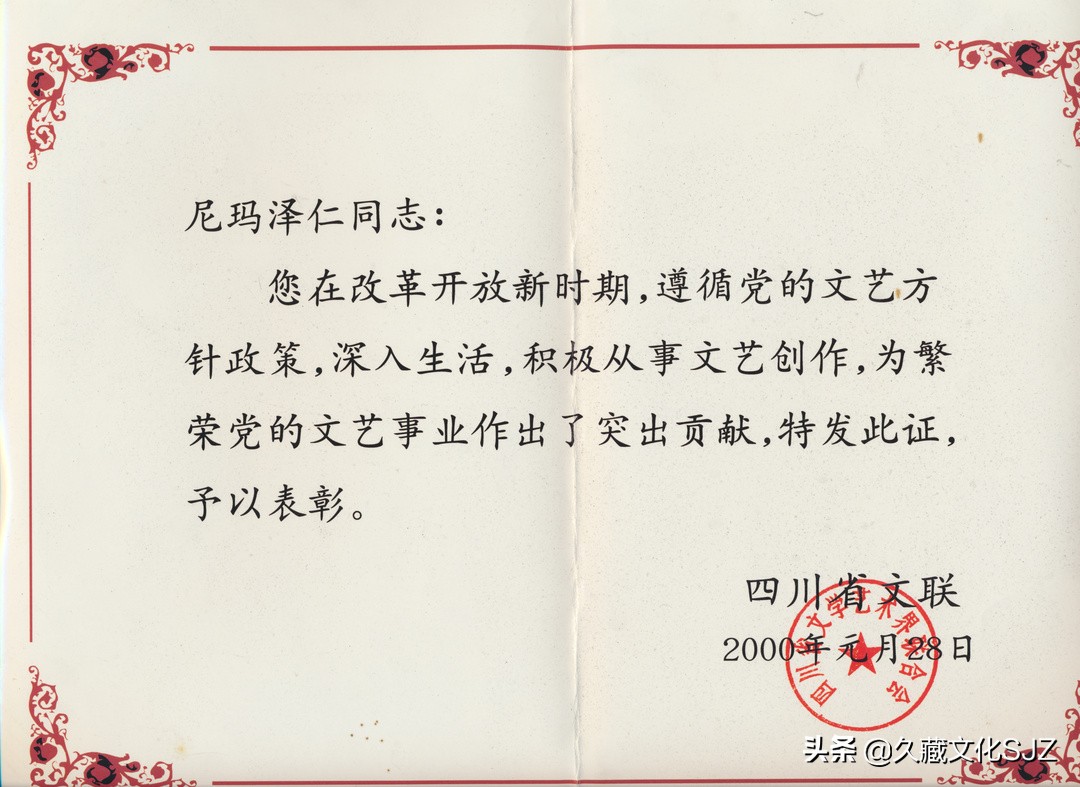 尼玛泽仁同志：
您在改革开放新时期，遵循党的文艺方
针政策，深入生活，积极从事文艺创作，为繁
荣党的文艺事业作出了突出贡献，特发此证，
予以表彰。
四川省文联
2000年元月28日
四川省文学艺术界联合会
头条 @久藏文化SJZ